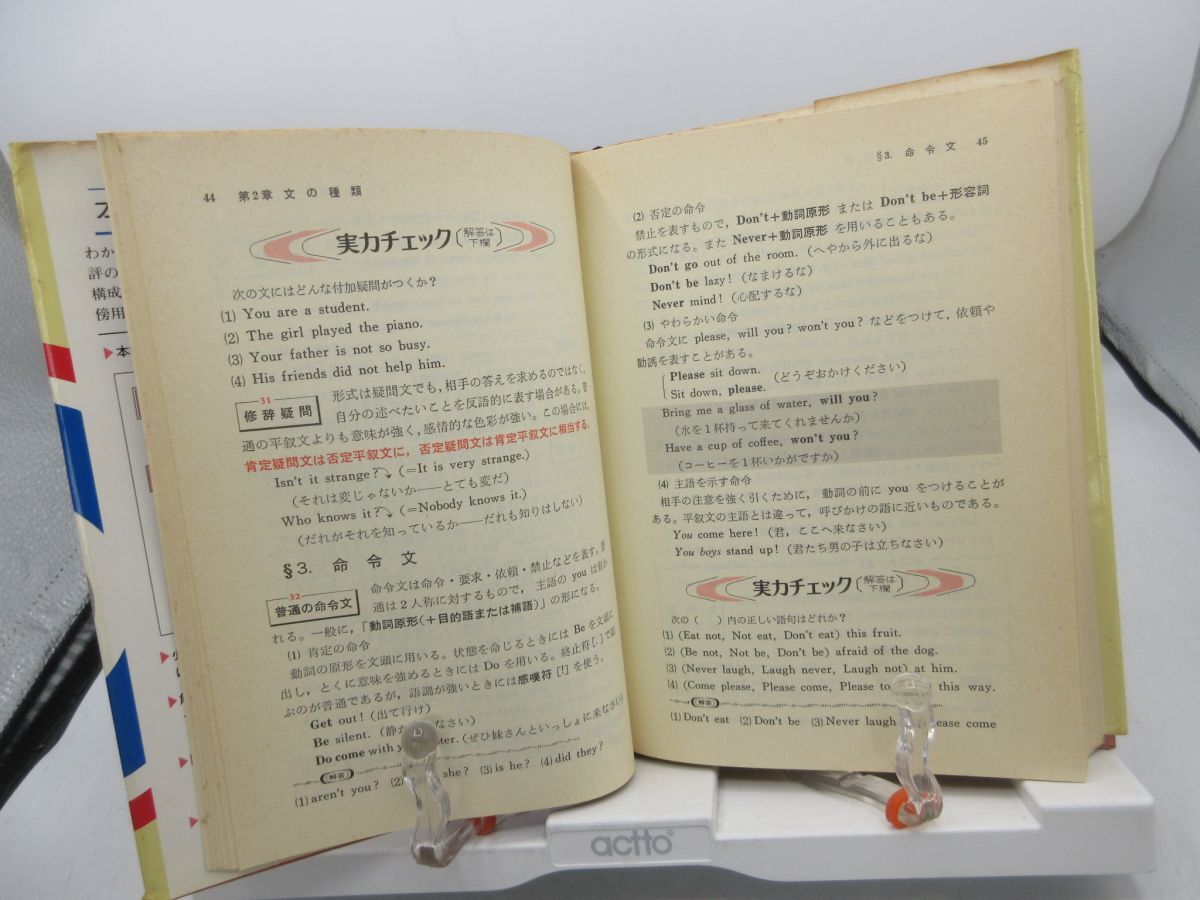 わか
評の
構成
傍用
▶本
44 第2章 文の種類
実力チェック（解答は下欄）
次の文にはどんな付加疑問がつくか？
(1) You are a student.
(2) The girl played the piano.
(3) Your father is not so busy.
(4) His friends did not help him.
31
修辞疑問
形式は疑問文でも，相手の答えを求めるのではなく，
自分の述べたいことを反語的に表す場合がある。普
通の平叙文よりも意味が強く，感情的な色彩が強い。この場合には，
肯定疑問文は否定平叙文に，否定疑問文は肯定平叙文に相当する。
Isn't it strange? (=It is very strange.)
（それは変じゃないか——とても変だ）
Who knows it? (=Nobody knows it.)
（だれがそれを知っているか——だれも知りはしない）
§3. 命令文
32
普通の命令文
命令文は命令・要求・依頼・禁止などを表す。普
通は2人称に対するもので，主語の you は省か
れる。一般に，「動詞原形(＋目的語または補語)」の形になる。
(1) 肯定の命令
動詞の原形を文頭に用いる。状態を命じるときには Be を文頭に
出し，とくに意味を強めるときには Do を用いる。終止符[.]で結
ぶのが普通であるが，語調が強いときには感嘆符[!]を使う。
Get out!（出て行け）
Be silent.（静か なさい）
Do come with（ぜひ妹さんといっしょに来なさい）
解答
(1) aren't you? (2) she? (3) is he? (4) did they?
§3. 命令文 45
(2) 否定の命令
禁止を表すもので，Don't＋動詞原形 または Don't be＋形容詞
の形式になる。また Never＋動詞原形 を用いることもある。
Don't go out of the room.（へやから外に出るな）
Don't be lazy!（なまけるな）
Never mind!（心配するな）
(3) やわらかい命令
命令文に please, will you? won't you? などをつけて，依頼や
勧誘を表すことがある。
Please sit down.
Sit down, please.（どうぞおかけください）
Bring me a glass of water, will you?
（水を1杯持って来てくれませんか）
Have a cup of coffee, won't you?
（コーヒーを1杯いかがですか）
(4) 主語を示す命令
相手の注意を強く引くために，動詞の前に you をつけることが
ある。平叙文の主語とは違って，呼びかけの語に近いものである。
You come here!（君，ここへ来なさい）
You boys stand up!（君たち男の子は立ちなさい）
実力チェック（解答は下欄）
次の（ ）内の正しい語句はどれか？
(1) (Eat not, Not eat, Don't eat) this fruit.
(2) (Be not, Not be, Don't be) afraid of the dog.
(3) (Never laugh, Laugh never, Laugh not) at him.
(4) (Come please, Please come, Please to this way.
解答
(1) Don't eat (2) Don't be (3) Never laugh come
actto